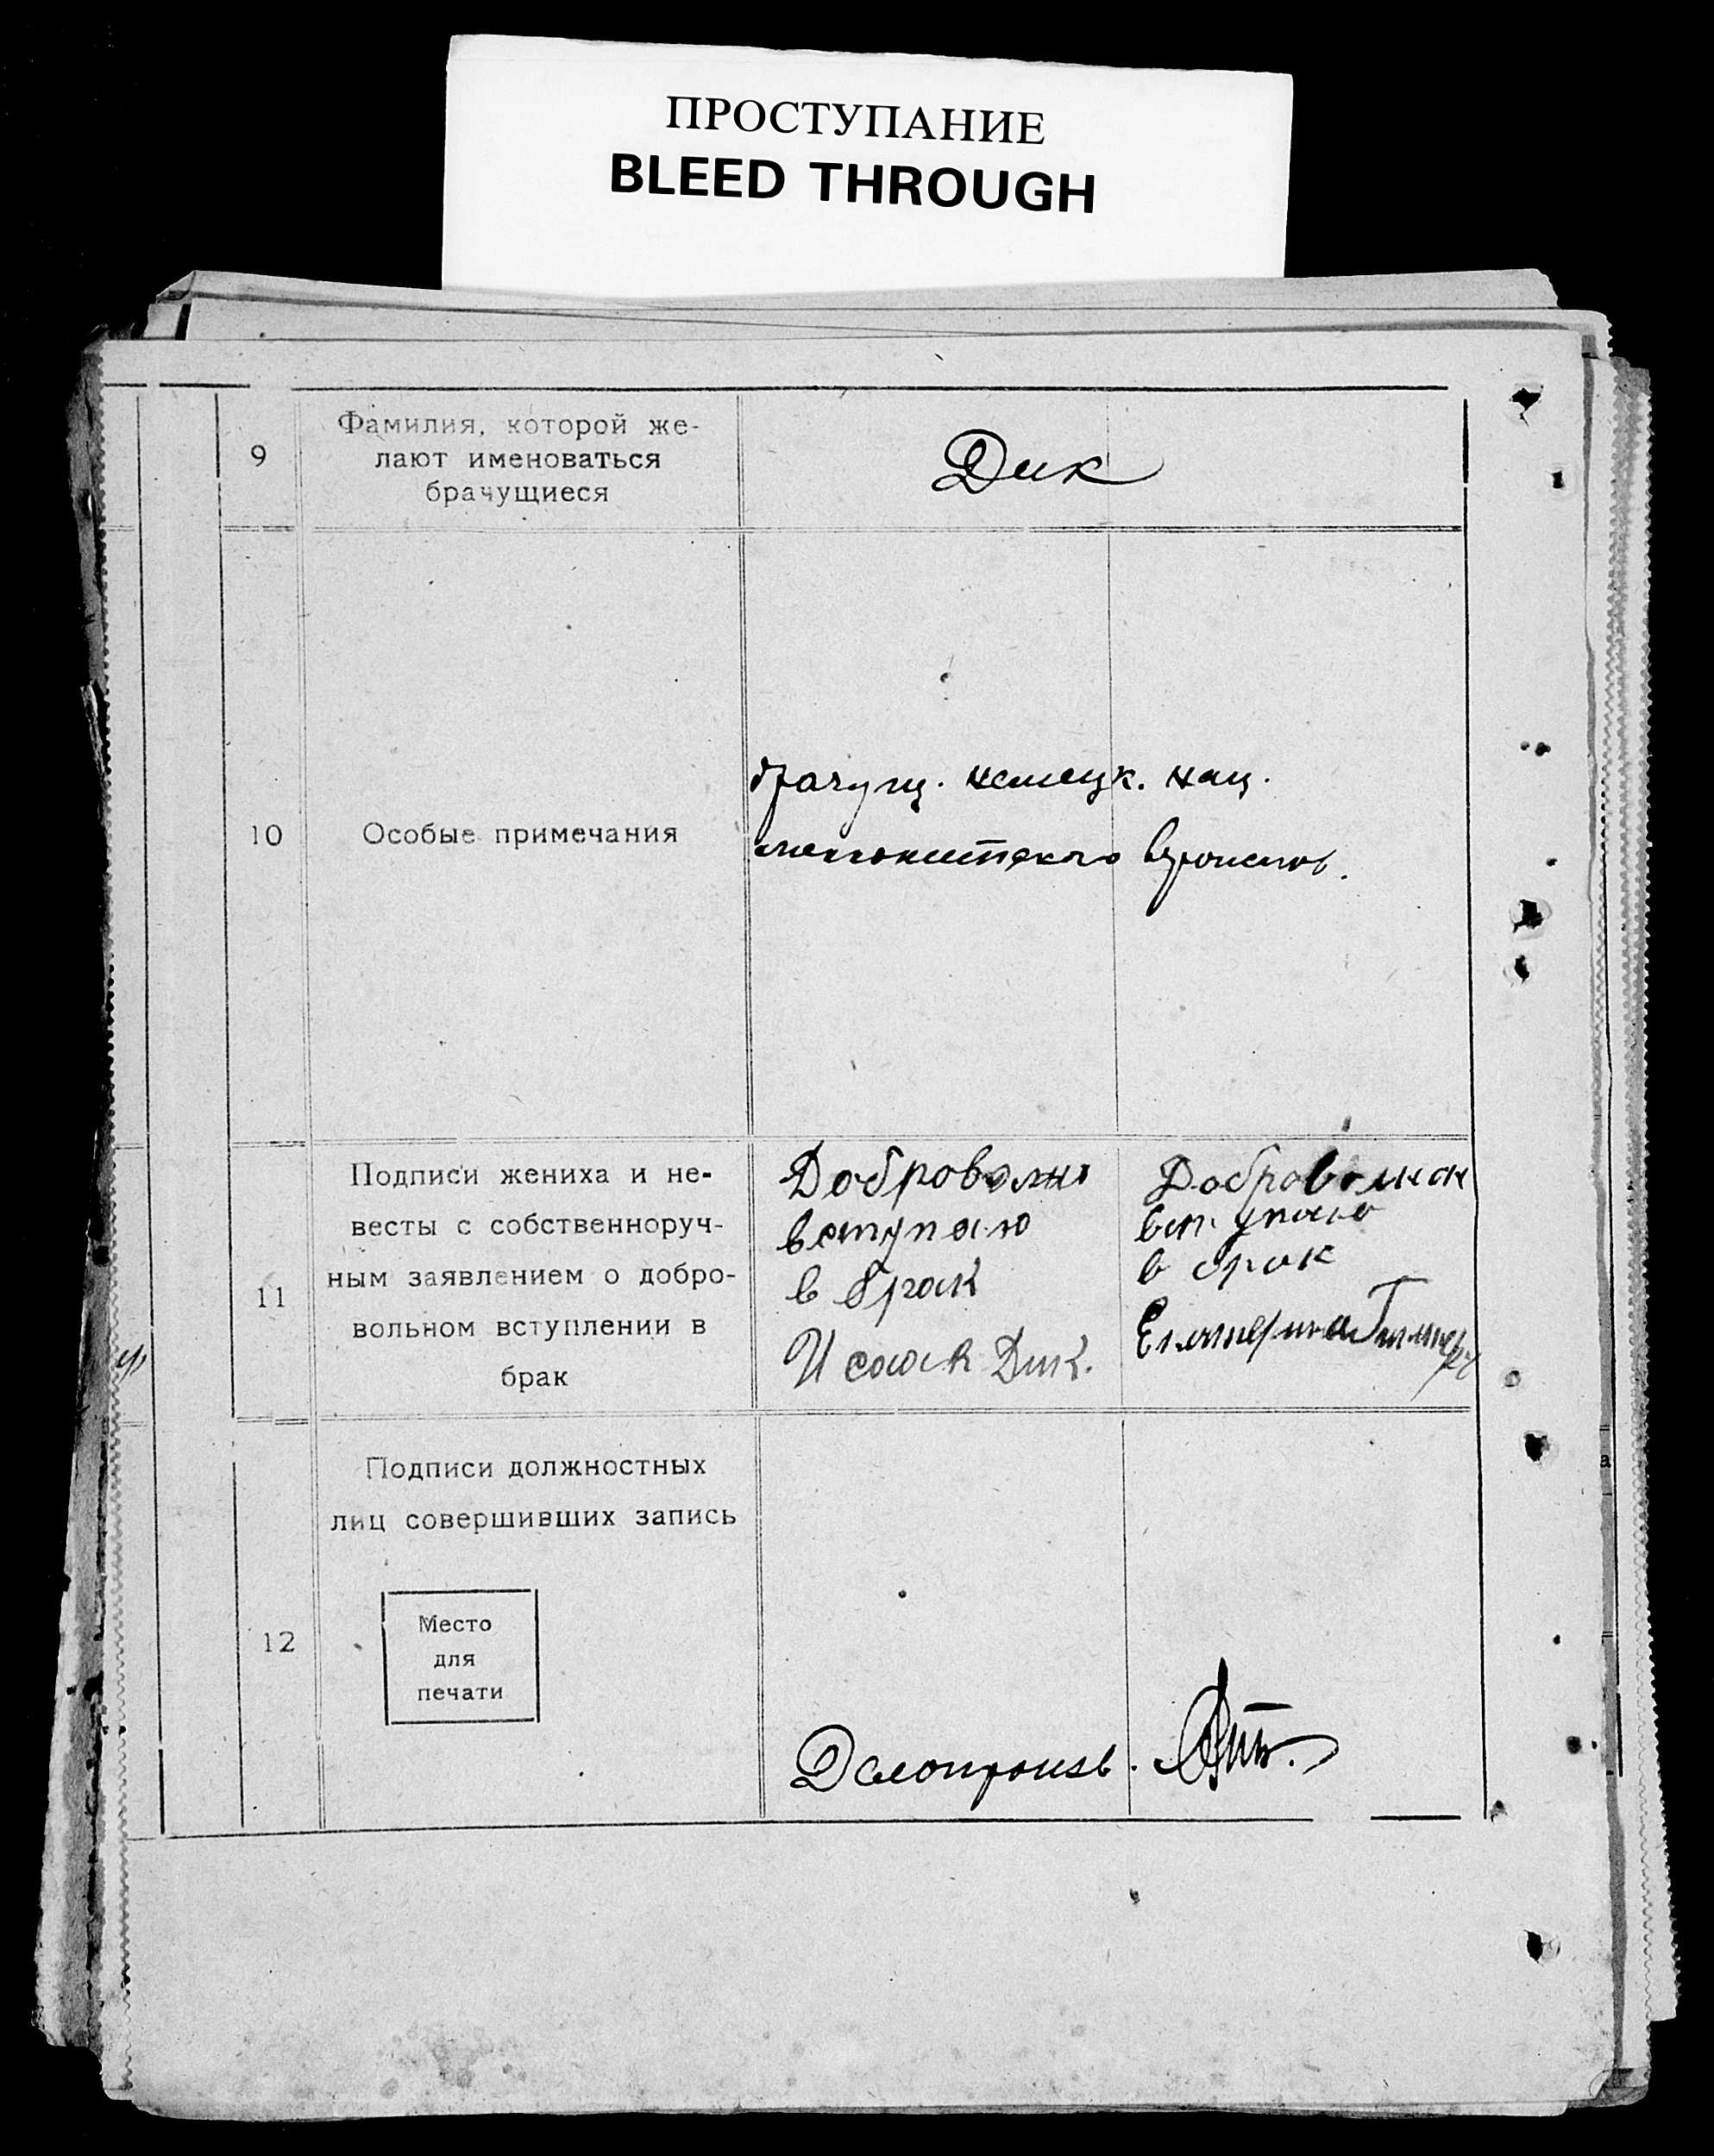 ПРОСТУПАНИЕ
BLEED THROUGH
9
Фамилия, которой же-
лают именоваться
брачущиеся
Дик
10
Особые примечания
брачущ. немецк. нац.
меннонитского вероисп.
11
Подписи жениха и не-
весты с собственноруч-
ным заявлением о добро-
вольном вступлении в
брак
Добровольно
вступаю
в брак
Исаак Дик.
Добровольно
вступаю
в брак
Екатерина
12
Подписи должностных
лиц совершивших запись
Место
для
печати
Делопроизв.